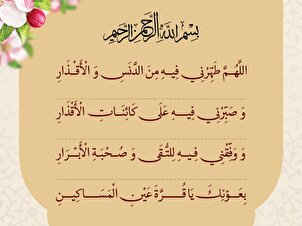 بِسْمِ اللَّهِ الرَّحْمَٰنِ الرَّحِيمِ
اللَّهُمَّ طَهِّرْنِي فِيهِ مِنَ الدَّنَسِ وَ الْأَقْذَارِ
وَ صَبِّرْنِي فِيهِ عَلَى كَائِنَاتِ الْأَقْدَارِ
وَ وَفِّقْنِي فِيهِ لِلتُّقَى وَ صُحْبَةِ الْأَبْرَارِ
بِعَوْنِكَ يَا قُرَّةَ عَيْنِ الْمَسَاكِينِ